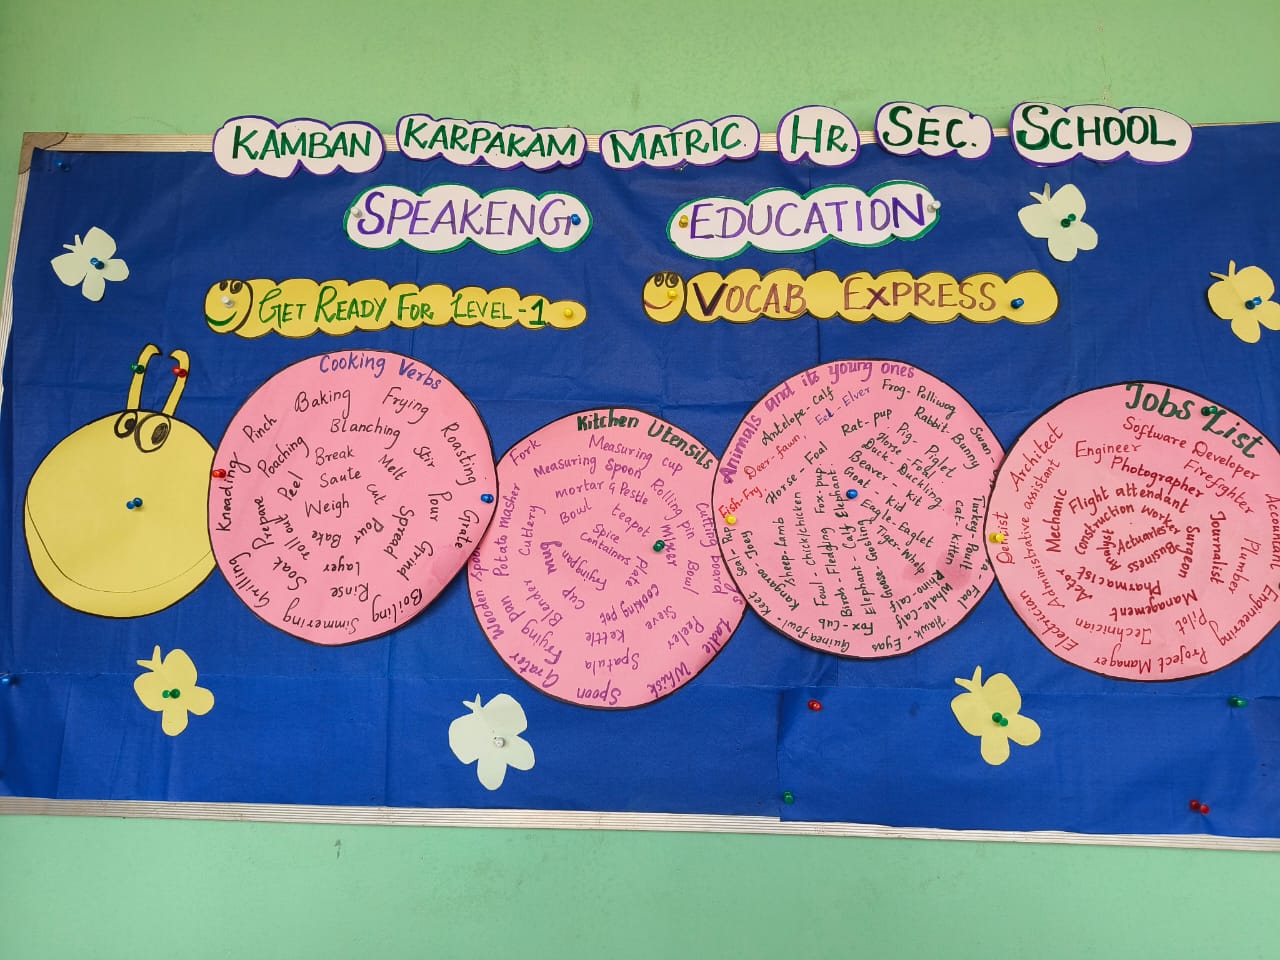 KAMBAN KARPAKAM MATRIC. HR. SEC. SCHOOL
SPEAKENG EDUCATION
GET READY FOR LEVEL-1 VOCAB EXPRESS
Cooking Verbs
Baking
Frying
Pinch
Blanching
Roasting
Poaching
Break
Stir
Kneading
Peel
Saute
Melt
Weigh
Cut
Pour
Grate
Prepare
Roll out
Bake
Pour
Spread
Grind
Soak
Layer
Grilling
Rinse
Boiling
Simmering
Kitchen Utensils
Fork
Measuring cup
Measuring Spoon
Rolling pin
mortar & Pestle
Potato masher
Cutlery
Bowl
teapot
Mixer
Cutting board
Spice Containers
Plate
Bowl
mug
Frying pan
Cup
Cooking pot
Wooden spoon
Blender
Sieve
Peeler
Ladle
Frying pan
Kettle
Whisk
Grater
Spatula
Spoon
Animals and its young ones
Antelope-calf
Eel-Elver
Frog-Polliwog
Deer-fawn,
Rat-pup
Rabbit-Bunny
Swan-
Pig-Piglet
Fish-Fry
Horse-Foal
Horse-Foal
Duck-Duckling
Beaver-Kit
Goat Kid
Eagle-Eaglet
Turkey-Poult
Cat-Kitten
Tiger-Whelp
Rhino-calf
Whale-Calf
Hawk-Eyas
Fox-pup
Elephant
Chick/chicken
Sheep-Lamb
Seal-Pup
Kangaroo Joey
Fowl-
Birds-Fledgling
Elephant Calf
Goose-Gosling
Fox-Cub
Guineafowl-Keet
Jobs List
Software Developer
Architect
Engineer
Firefighter
Photographer
Accountant
Administrative assistant
Flight attendant
Dentist
Mechanic
Construction worker
Journalist
Plumber
Actuaries
Surgeon
Analyst
Business
Actor
Pharmacist
Management
Engineering
Electrician
Technician
Pilot
Project Manager